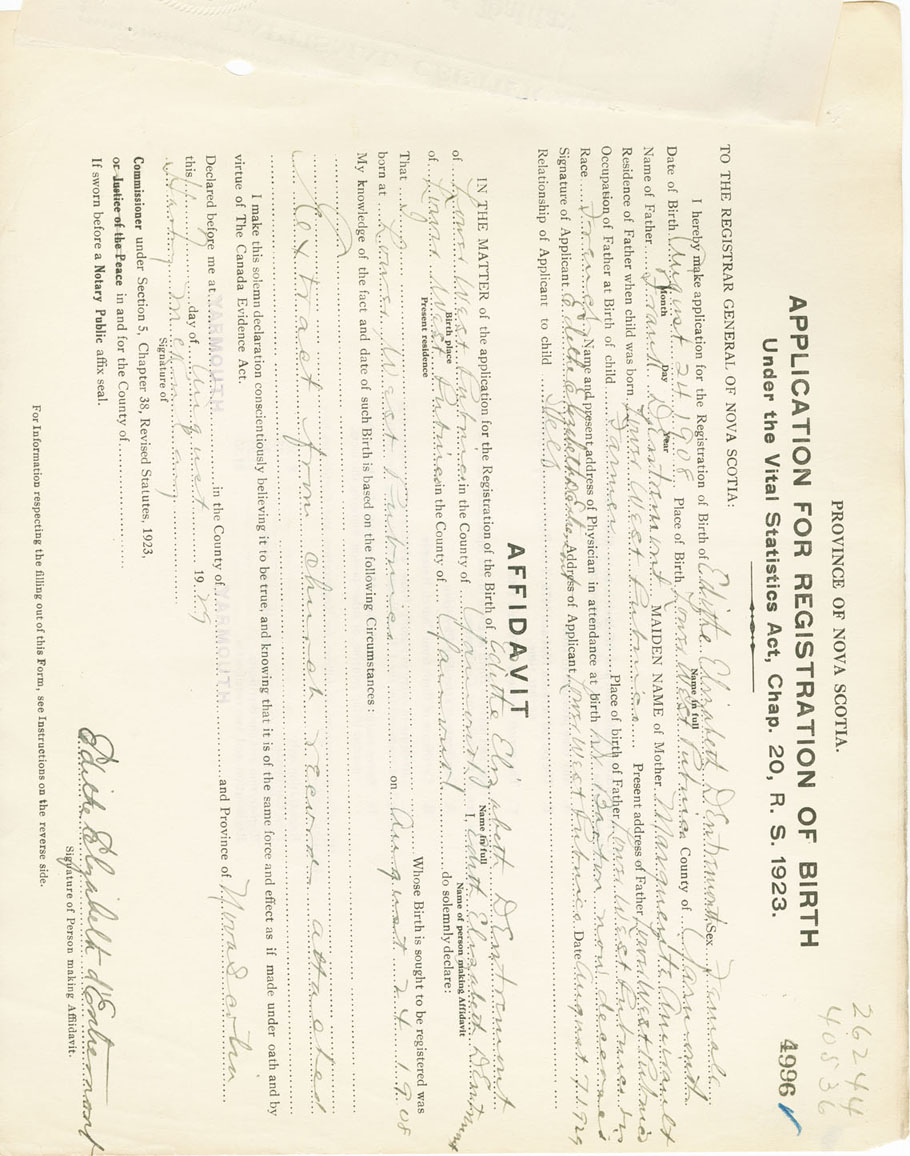 26244
40836
4996
PROVINCE OF NOVA SCOTIA.
APPLICATION FOR REGISTRATION OF BIRTH
Under the Vital Statistics Act, Chap. 20, R. S. 1923.
TO THE REGISTRAR GENERAL OF NOVA SCOTIA:
I hereby make application for the Registration of Birth of Edithe Elizabett D'Entremont Sex Female
Name in full
Date of Birth August 24 1908 Place of Birth Lower West Pubnico County of Yarmouth
Month Day Year
Name of Father Frank D'Entremont MAIDEN NAME of Mother Marguerite Amirault
Residence of Father when child was born Lower West Pubnico Present address of Father Lower West Pubnico
Occupation of Father at Birth of child Farmer Place of birth of Father Lower West Pubnico
Race French Name and present address of Physician in attendance at birth Dr Barton now deceased
Signature of Applicant Edithe Elizabeth Address of Applicant Lower West Pubnico Date August 7 1929
Relationship of Applicant to child Self
AFFIDAVIT
IN THE MATTER of the application for the Registration of the Birth of Edithe Elizabett D'Entremont
Name in full
of Lower West Pubnico in the County of Yarmouth I, Edith Elizabeth D'Entremont
Birth place Name of person making Affidavit
of Lower West Pubnico in the County of Yarmouth do solemnly declare:
Present residence
That I Whose Birth is sought to be registered was
born at Lower West Pubnico on August 24 1908
My knowledge of the fact and date of such Birth is based on the following Circumstances:
Extract from church record attached
I make this solemn declaration conscientiously believing it to be true, and knowing that it is of the same force and effect as if made under oath and by
virtue of The Canada Evidence Act.
Declared before me at YARMOUTH in the County of YARMOUTH and Province of Nova Scotia
this day of August 1929
Signature of
Commissioner under Section 5, Chapter 38, Revised Statutes, 1923,
or Justice of the Peace in and for the County of
If sworn before a Notary Public affix seal.
Edithe Elizabeth d'Entremont
Signature of Person making Affidavit.
For Information respecting the filling out of this Form, see Instructions on the reverse side.